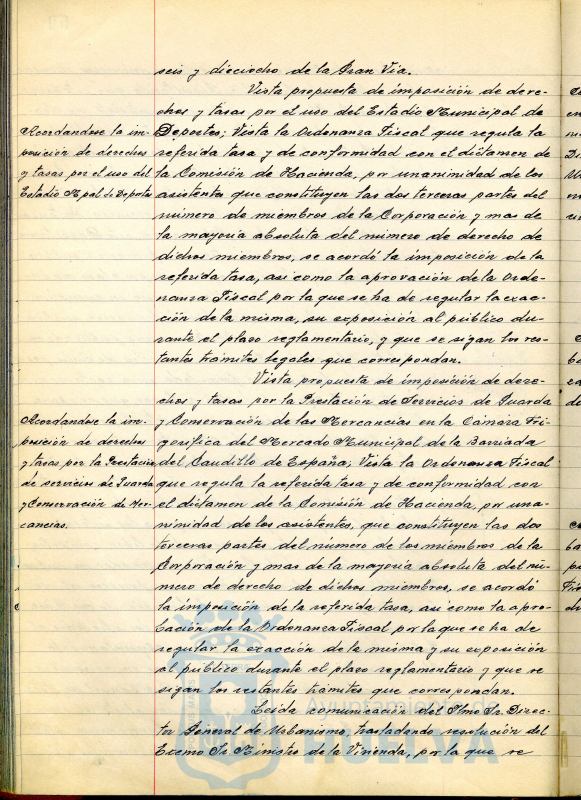 seis y dieciocho de la Gran Via.
Vista propuesta de imposición de dere-
chos y tasas por el uso del Estadio Municipal de
Acordandose la im-
posición de derechos
y tasas por el uso del
Estadio Mpal de Deportes
Deportes; Vista la Ordenanza Fiscal que regula la
referida tasa y de conformidad con el dictamen de
la Comisión de Hacienda, por unanimidad de los
asistentes que constituyen las dos terceras partes del
número de miembros de la Corporación y mas de
la mayoría absoluta del número de derecho de
dichos miembros, se acordó la imposición de la
referida tasa, asi como la aprovación de la Orde-
nanza Fiscal por la que se ha de regular la exac-
ción de la misma, su exposición al público du-
rante el plazo reglamentario, y que se sigan los res-
tantes trámites legales que correspondan.
Vista propuesta de imposición de dere-
chos y tasas por la Prestación de Servicios de Guarda
Acordandose la im-
posición de derechos
y tasas por la Prestación
de servicios de Guarda
y Conservación de Mer-
cancias.
y Conservación de las Mercancias en la Cámara Fri-
gorifica del Mercado Municipal de la Barriada
del Caudillo de España; Vista la Ordenanza Fiscal
que regula la referida tasa y de conformidad con
el dictamen de la Comisión de Hacienda, por una-
nimidad de los asistentes, que constituyen las dos
terceras partes del número de los miembros de la
Corporación y mas de la mayoría absoluta del nú-
mero de derecho de dichos miembros, se acordó
la imposición de la referida tasa, asi como la apro-
bación de la Ordenanza Fiscal por la que se ha de
regular la exacción de la misma y su exposición
al público durante el plazo reglamentario y que se
sigan los restantes trámites que correspondan.
Leida comunicación del Ilmo Sr. Direc-
tor General de Urbanismo, trasladando resolución del
Excmo Sr. Ministro de la Vivienda, por la que se
Ayuntamiento
HUELVA